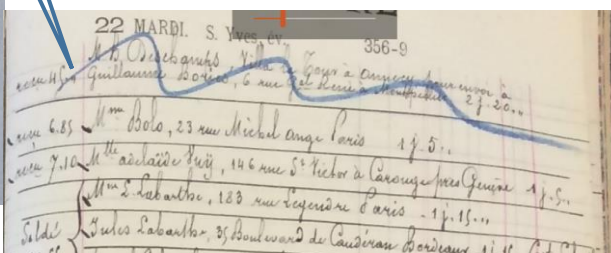 22 MARDI. S. Yves, év. 356-9
M. B. Deschamps, Villa de Tour à Annecy pour envoi à
reçu 45 Guillaume Bories, 6 rue à 2 j. 20 "
reçu 6.85 Mme Bolo, 23 rue Michel ange Paris 1 j. 5 "
reçu 7.10 Mlle adelaïde Vuÿ, 146 rue St Victor à Carouge près Genève 1 j. 5 "
Mme E. Labarthe, 183 rue Legendre Paris - 1 j. 15 "
Soldé Jules Labarthe, 35 Boulevard de Caudéran Bordeaux 1 j. 15